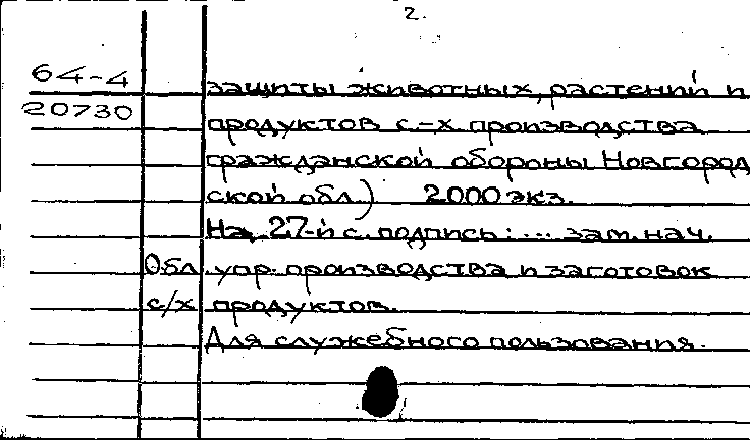 2.
64-4
защиты животных, растений и
20730
продуктов с.-х. производства
гражданской обороны Новгород
ской обл.) 2000 экз.
На 27-й с. подпись: ... зам. нач.
Обл. упр. производства и заготовок
с/х продуктов.
Для служебного пользования.